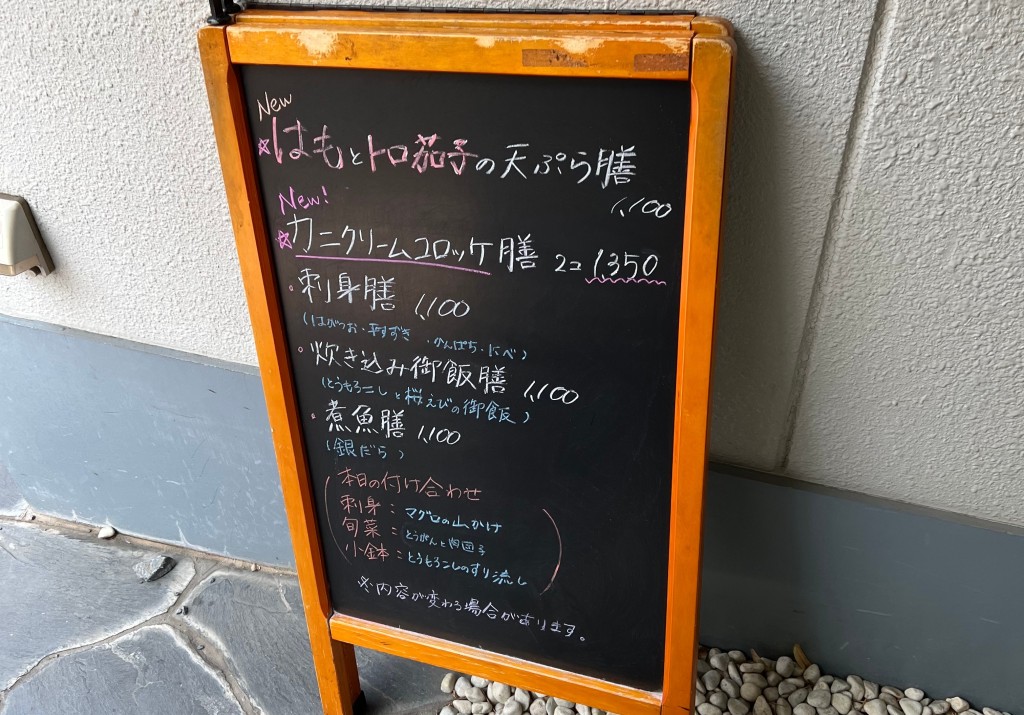 New
☆はもとトロ茄子の天ぷら膳
1,100
New!
☆カニクリームコロッケ膳 2コ 1,350
・刺身膳 1,100
(はがつお・平すずき・かんぱち・にべ)
・炊き込み御飯膳 1,100
(とうもろこしと桜えびの御飯)
・煮魚膳 1,100
(銀だら)
本日の付け合わせ
刺身：マグロの山かけ
旬菜：とうがんと肉団子
小鉢：とうもろこしのすり流し
※内容が変わる場合があります。